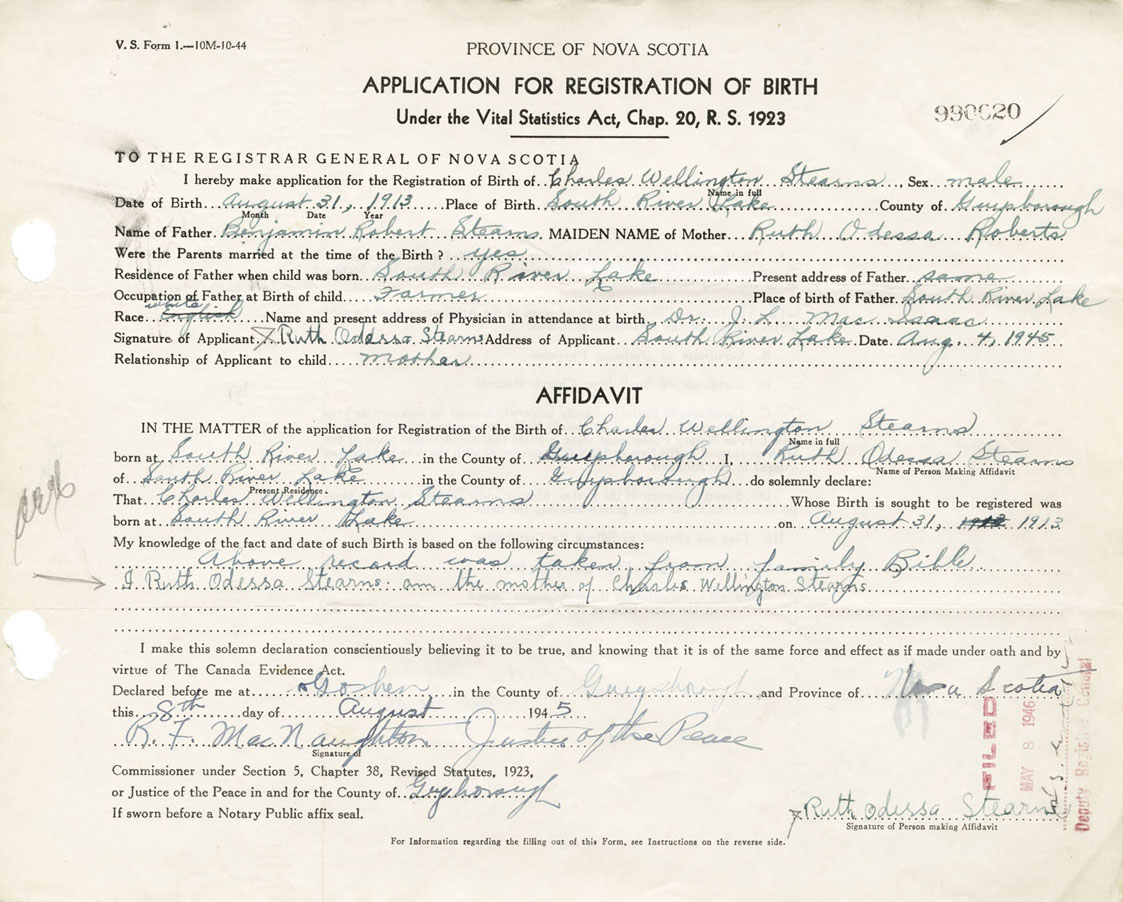 V. S. Form 1.—10M-10-44
PROVINCE OF NOVA SCOTIA
APPLICATION FOR REGISTRATION OF BIRTH
Under the Vital Statistics Act, Chap. 20, R. S. 1923
990620
TO THE REGISTRAR GENERAL OF NOVA SCOTIA
I hereby make application for the Registration of Birth of Charles Wellington Stearns, Sex male
Name in full
Date of Birth August 31, 1913 Place of Birth South River Lake County of Guysborough
Month Date Year
Name of Father Benjamin Robert Stearns MAIDEN NAME of Mother Ruth Odessa Roberts
Were the Parents married at the time of the Birth? yes
Residence of Father when child was born South River Lake Present address of Father same
Occupation of Father at Birth of child Farmer Place of birth of Father South River Lake
white
Race English Name and present address of Physician in attendance at birth Dr. J. L. Mac Isaac
Signature of Applicant x Ruth Odessa Stearns Address of Applicant South River Lake Date Aug. 4, 1945
Relationship of Applicant to child mother
AFFIDAVIT
IN THE MATTER of the application for Registration of the Birth of Charles Wellington Stearns
Name in full
born at South River Lake in the County of Guysborough I, Ruth Odessa Stearns
Name of Person Making Affidavit
of South River Lake in the County of Guysborough do solemnly declare:
Present Residence.
That Charles Wellington Stearns Whose Birth is sought to be registered was
born at South River Lake on August 31, 1913
My knowledge of the fact and date of such Birth is based on the following circumstances:
Above record was taken from family Bible
I Ruth Odessa Stearns am the mother of Charles Wellington Stearns
I make this solemn declaration conscientiously believing it to be true, and knowing that it is of the same force and effect as if made under oath and by
virtue of The Canada Evidence Act.
Declared before me at Goshen in the County of Guysborough and Province of Nova Scotia
this 8th day of August 1945
R. F. MacNaughton Justice of the Peace
Signature of
Commissioner under Section 5, Chapter 38, Revised Statutes, 1923,
or Justice of the Peace in and for the County of Guysborough
If sworn before a Notary Public affix seal.
x Ruth Odessa Stearns
Signature of Person making Affidavit
For Information regarding the filling out of this Form, see Instructions on the reverse side.
FILED
MAY 8 1946
Deputy Registrar General